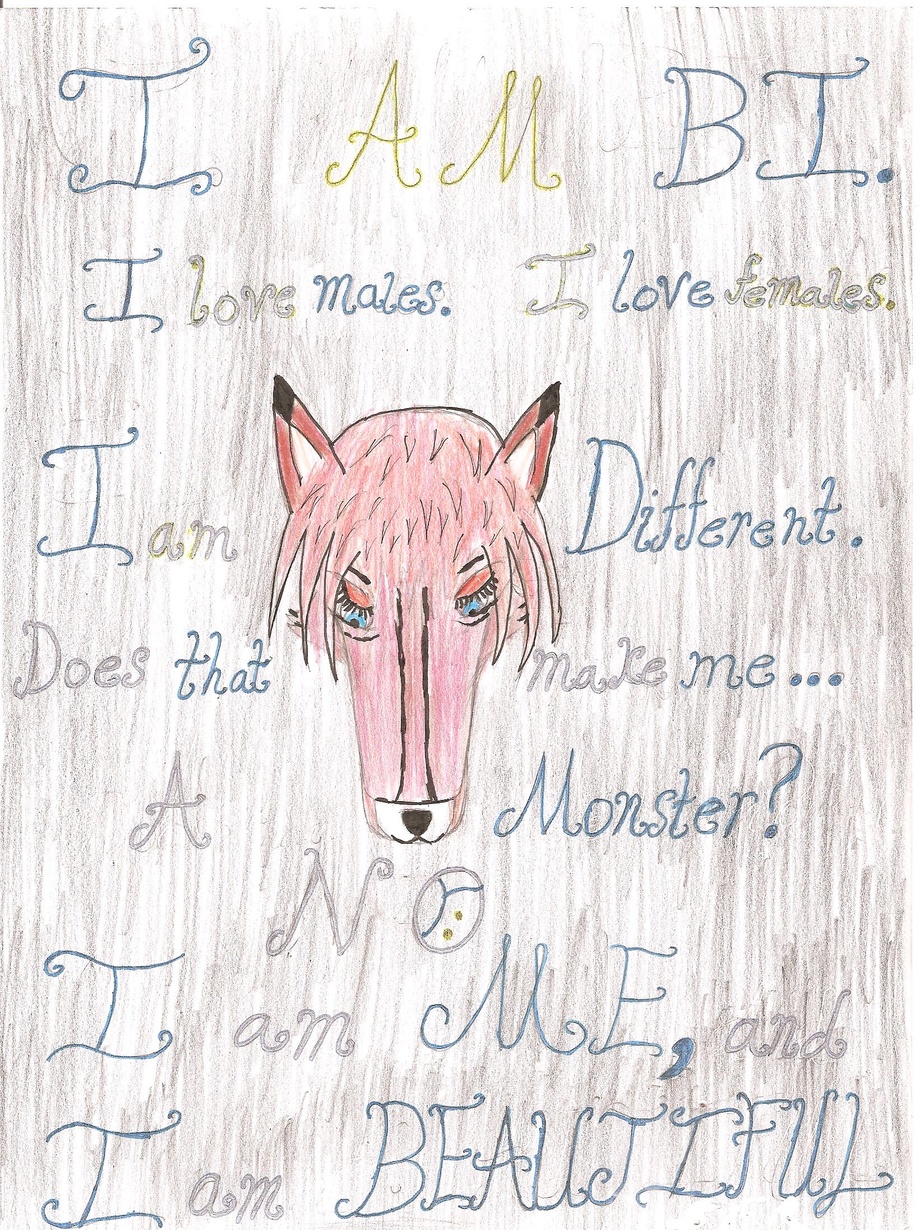 I AM BI.
I love males. I love females.
I am Different.
Does that make me...
A Monster?
NO
I am ME, and
I am BEAUTIFUL